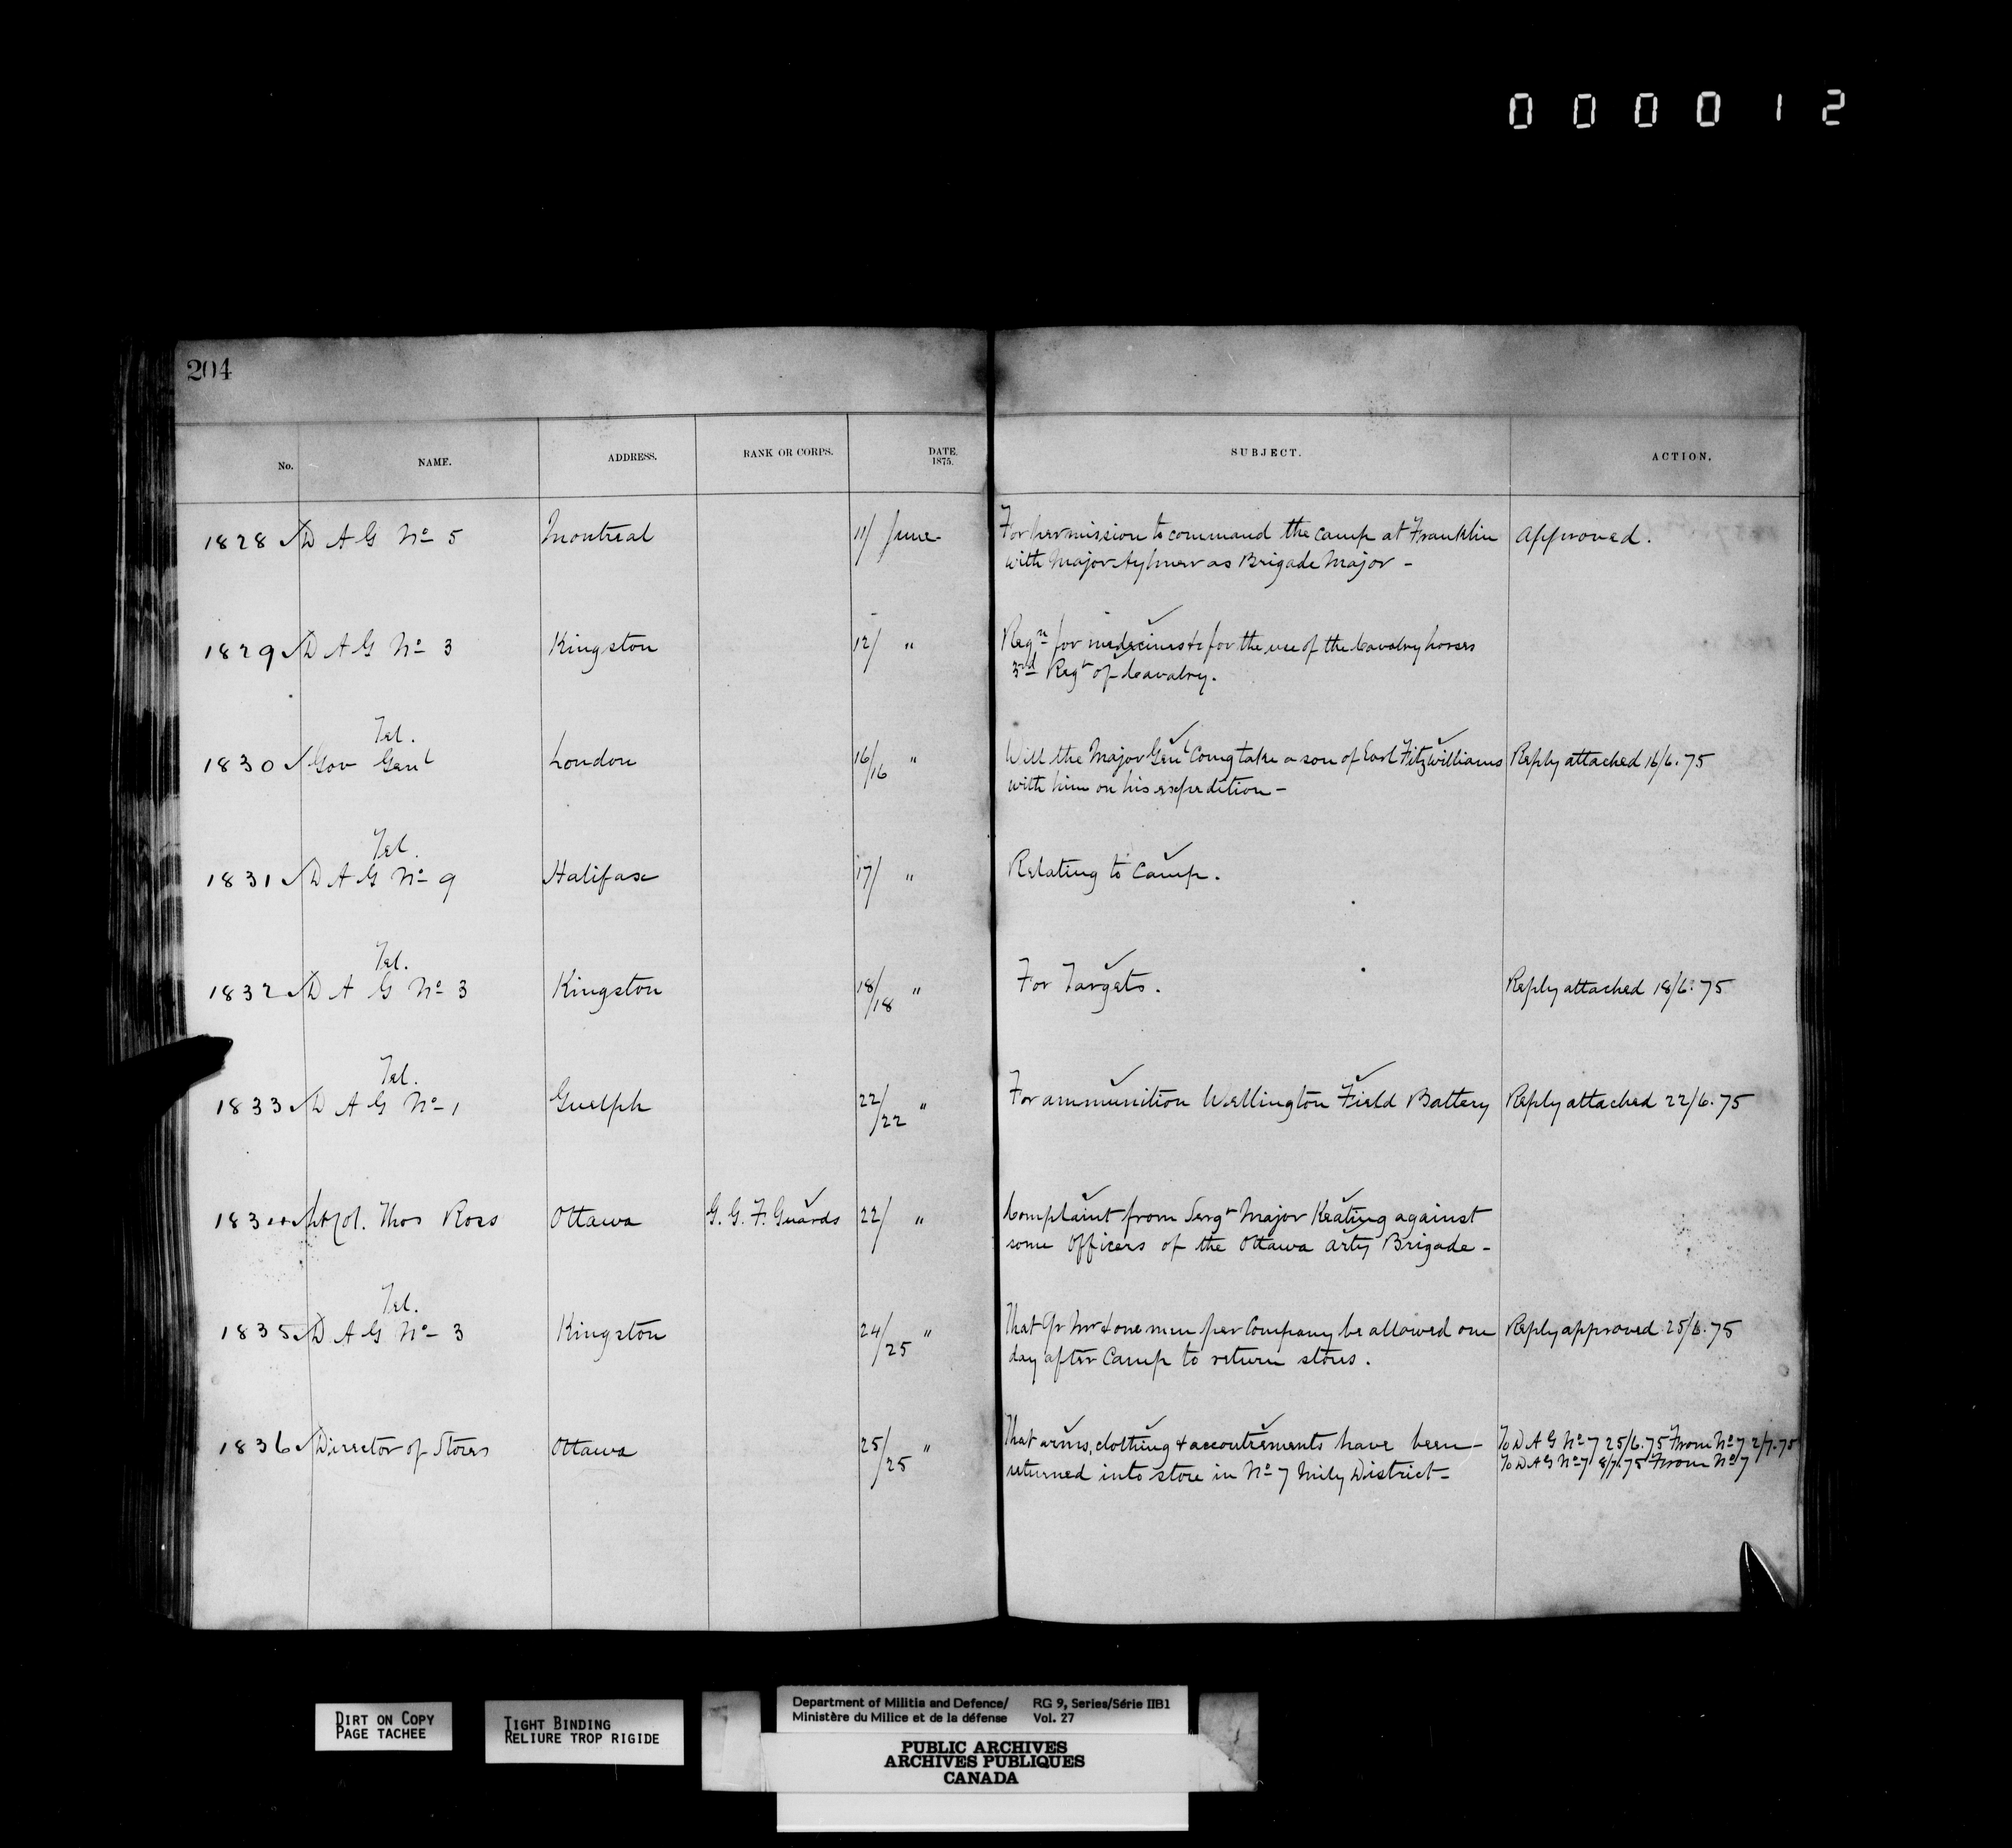 000012
204
No. NAME. ADDRESS. RANK OR CORPS. DATE. 1875. SUBJECT. ACTION.
1828 D A G No 5 Montreal 11/ June For permission to command the camp at Franklin Approved.
with Major Aylmer as Brigade Major -
1829 D A G No 3 Kingston 12/ " Reqn for medecines &c for the use of the Cavalry horses
3rd Regt of Cavalry.
Tel.
1830 Gov Genl London 16/16 " Will the Major Genl Comg take a son of Earl Fitzwilliams Reply attached 16/6.75
with him on his expedition -
Tel.
1831 D A G No 9 Halifax 17/ " Relating to Camp.
Tel.
1832 D A G No 3 Kingston 18/18 " For Targets. Reply attached 18/6.75
Tel.
1833 D A G No 1 Guelph 22/22 " For ammunition Wellington Field Battery Reply attached 22/6.75
1834 Lt Col. Thos Ross Ottawa G. G. F. Guards 22/ " Complaint from Sergt Major Keating against
some officers of the Ottawa Arty Brigade -
Tel.
1835 D A G No 3 Kingston 24/25 " That Qr Mr & one man per Company be allowed one Reply approved 25/6.75
day after Camp to return stores.
1836 Director of Stores Ottawa 25/25 " That arms, clothing & accoutrements have been - To D A G No 7 25/6.75 From No 7 2/7.75
returned into store in No 7 Mily District - To D A G No 7 8/7.75 From No 7
DIRT ON COPY
PAGE TACHEE
TIGHT BINDING
RELIURE TROP RIGIDE
Department of Militia and Defence/ RG 9, Series/Série IIB1
Ministère du Milice et de la défense Vol. 27
PUBLIC ARCHIVES
ARCHIVES PUBLIQUES
CANADA